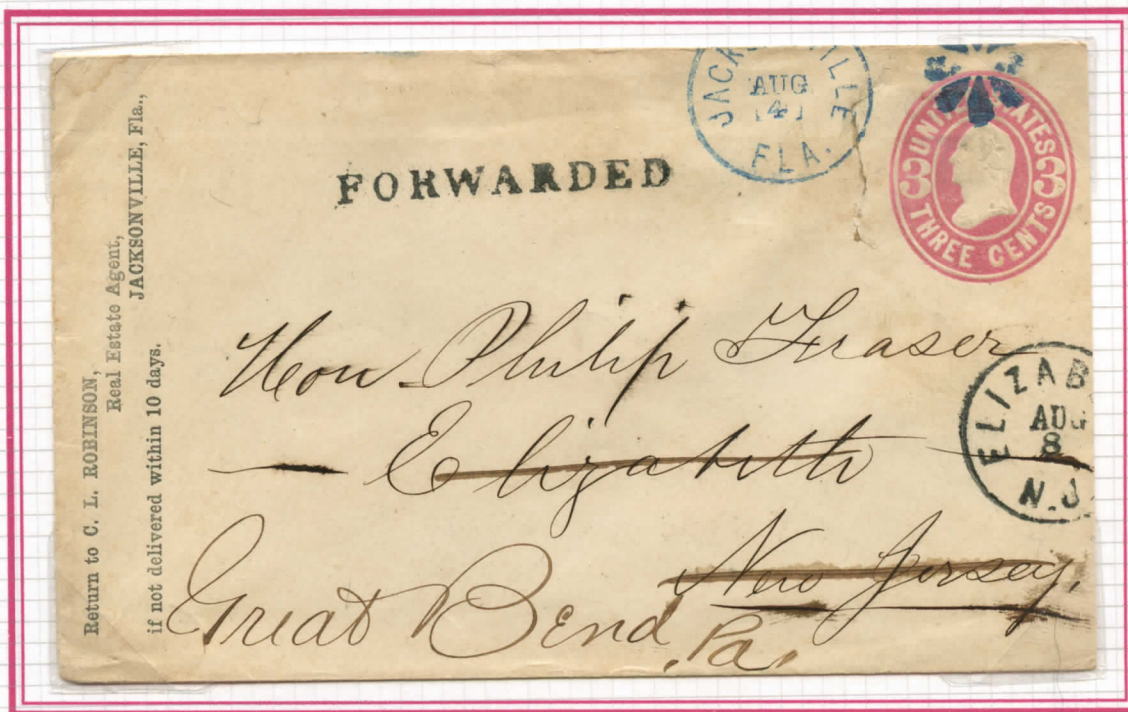 Return to C. L. ROBINSON,
Real Estate Agent,
JACKSONVILLE, Fla.,
if not delivered within 10 days.
FORWARDED
AUG
4
FLA.
UNITED STATES
3 3
THREE CENTS
Hon Philip Fraser
Elizabeth
New Jersey,
Great Bend, Pa.
ELIZAB
AUG
8
N.J.